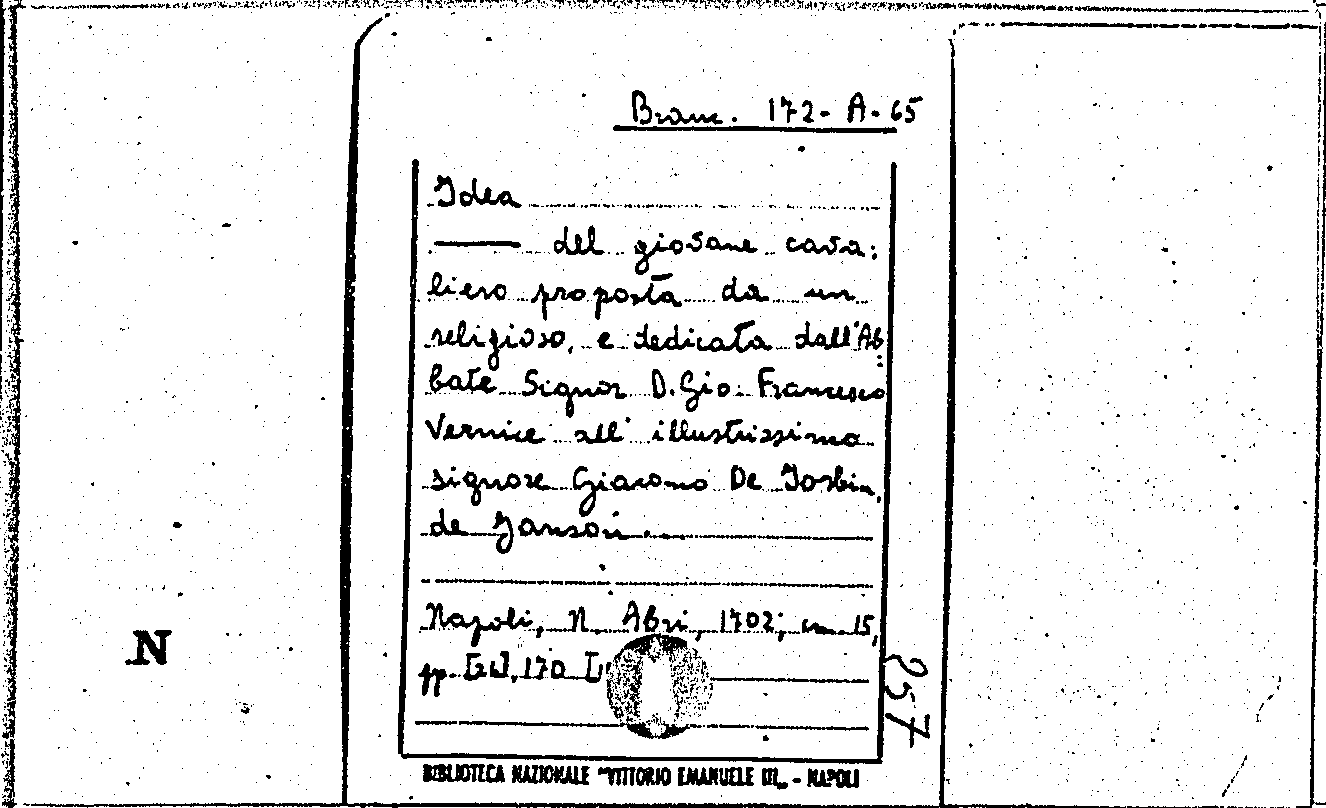 Branc. 172- A- 65
Idea
——— del giovane cava:
liero proposta da un
religioso, e dedicata dall'Ab:
bate Signor D. Gio: Francesco
Vernice all' illustrissimo
signore Giacomo De Forbin,
de Janson.
Napoli, N. Abri, 1702; cm 15,
pp. 170
257
N
BIBLIOTECA NAZIONALE "VITTORIO EMANUELE III„ - NAPOLI